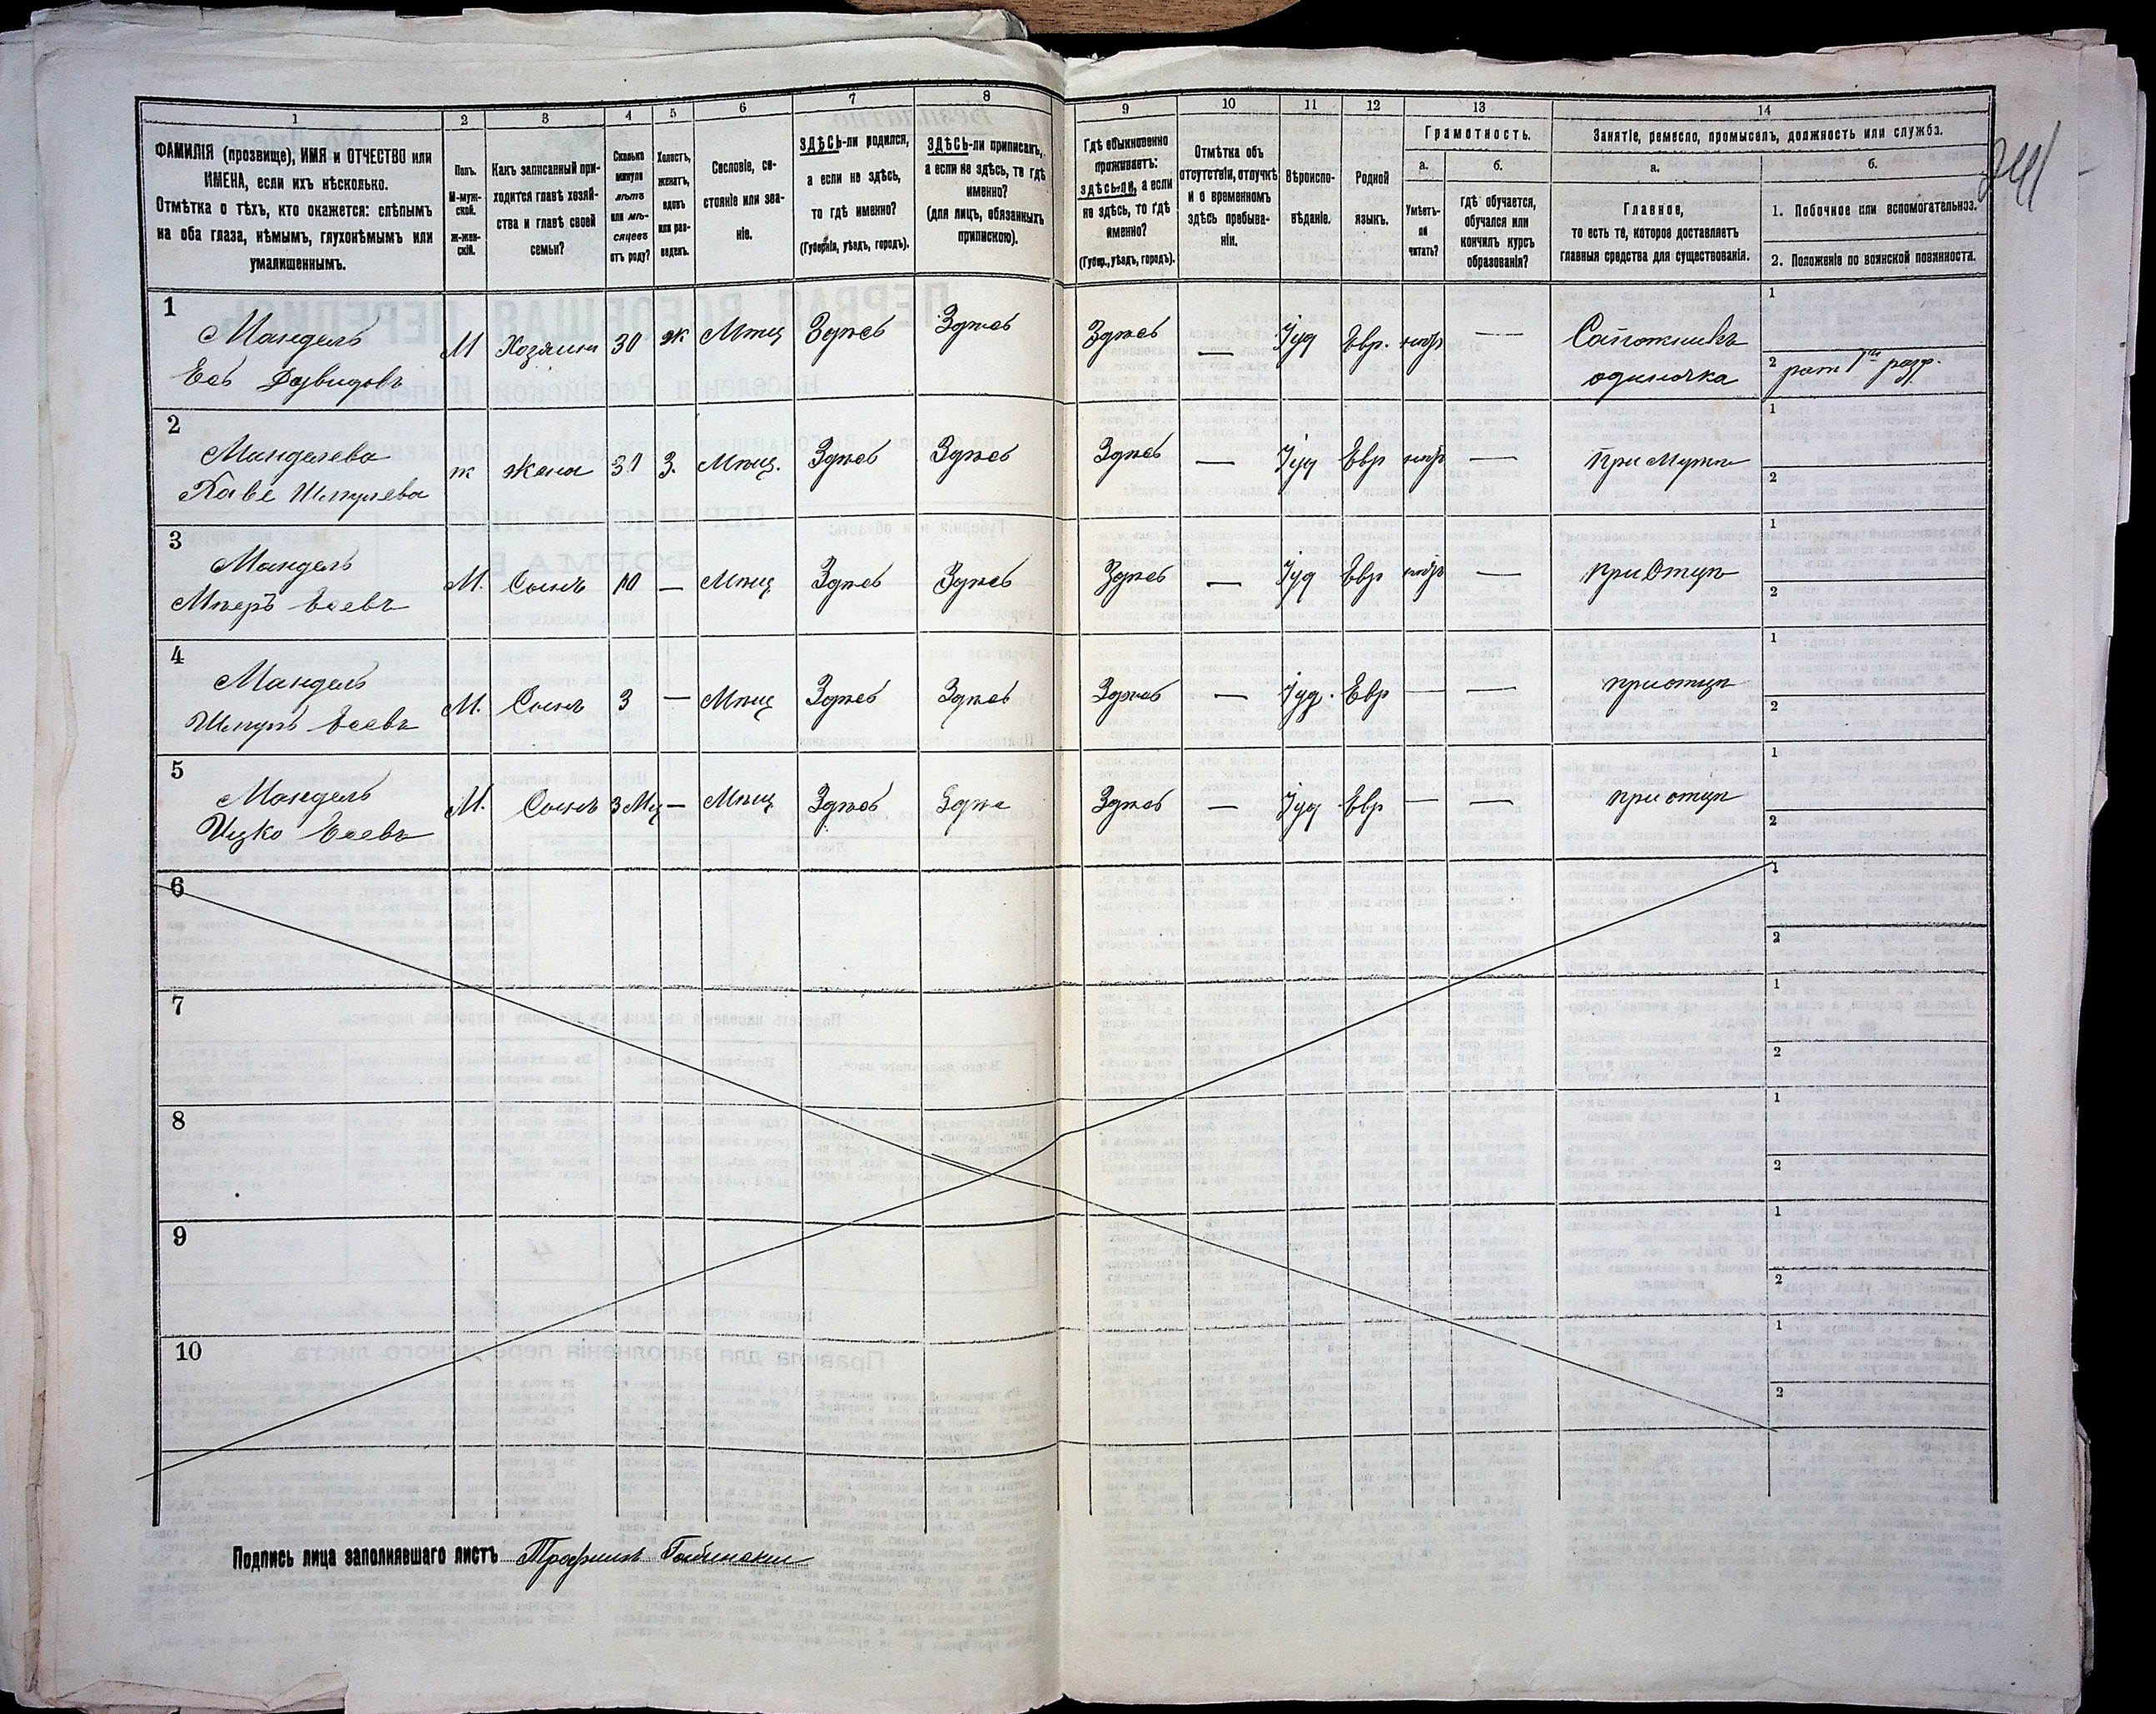 241
1 2 3 4 5 6 7 8 9 10 11 12 13 14
ФАМИЛІЯ (прозвище), ИМЯ и ОТЧЕСТВО или
ИМЕНА, если ихъ нѣсколько.
Отмѣтка о тѣхъ, кто окажется: слѣпымъ
на оба глаза, нѣмымъ, глухонѣмымъ или
умалишеннымъ.
Полъ.
М-муж-
ской.
ж-жен-
скій.
Какъ записанный при-
ходится главѣ хозяй-
ства и главѣ своей
семьи?
Сколько
минуло
лѣтъ
или мѣ-
сяцевъ
отъ роду?
Холостъ,
женатъ,
вдовъ
или раз-
веденъ.
Сословіе, со-
стояніе или зва-
ніе.
ЗДѢСЬ-ли родился,
а если не здѣсь,
то гдѣ именно?
(Губернія, уѣздъ, городъ).
ЗДѢСЬ-ли приписанъ,
а если не здѣсь, то гдѣ
именно?
(для лицъ, обязанныхъ
припискою).
Гдѣ обыкновенно
проживаетъ:
здѣсь-ли, а если
не здѣсь, то гдѣ
именно?
(Губер., уѣздъ, городъ).
Отмѣтка объ
отсутствіи, отлучкѣ
и о временномъ
здѣсь пребыва-
ніи.
Вѣроиспо-
вѣданіе.
Родной
языкъ.
Грамотность.
а. б.
Умѣетъ-
ли
читать?
гдѣ обучается,
обучался или
кончилъ курсъ
образованія?
Занятіе, ремесло, промыселъ, должность или служба.
а. б.
Главное,
то есть то, которое доставляетъ
главныя средства для существованія.
1. Побочное или вспомогательное.
2. Положеніе по воинской повинности.
1 1
Мандель М Хозяинъ 30 ж Мѣщ Здѣсь Здѣсь Здѣсь — Іуд Евр. — Сапожникъ
Есь Давидовъ одиночка 2 рат 1го разр.
2 1
Манделева ж жена 31 З. Мѣщ. Здѣсь Здѣсь Здѣсь — Іуд Евр — При Мужѣ
Шмулева 2
3 1
Мандель М. Сынъ 10 — Мѣщ Здѣсь Здѣсь Здѣсь — Іуд Евр — при Отцѣ
Мееръ Есевъ 2
4 1
Мандель М. Сынъ 3 — Мѣщ Здѣсь Здѣсь Здѣсь — Іуд. Евр — — при отцѣ
Шмуль Есевъ 2
5 1
Мандель М. Сынъ 3 Мц — Мѣщ Здѣсь Здѣс Здѣсь — Іуд Евр — — при отцѣ
Ицко Есевъ 2
6 1
2
7 1
2
8 1
2
9 1
2
10 1
2
Подпись лица заполнявшаго листъ Трофимъ